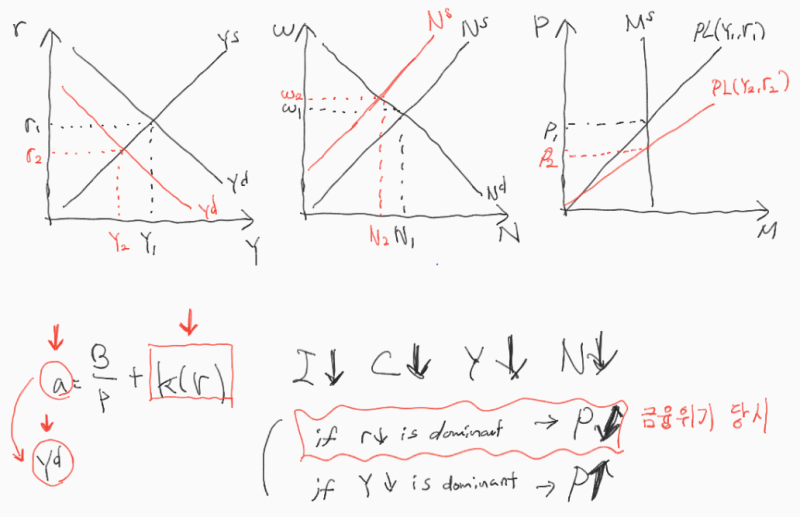 r
Ys
r₁
r₂
Yd
Yd
Y₂
Y₁
Y
w
Nˢ
Nˢ
w₂
w₁
Nᵈ
N₂
N₁
N
P
Mˢ
PL(Y₁,r₁)
PL(Y₂,r₂)
P₁
P₂
M
a = B/P + k(r)
Yd
I↓ C↓ Y↓ N↓
if r↓ is dominant → P↓ 금융위기 당시
if Y↓ is dominant → P↑